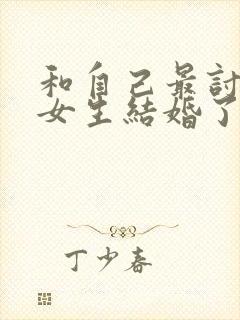 和自己最討
女生結婚了
丁少春